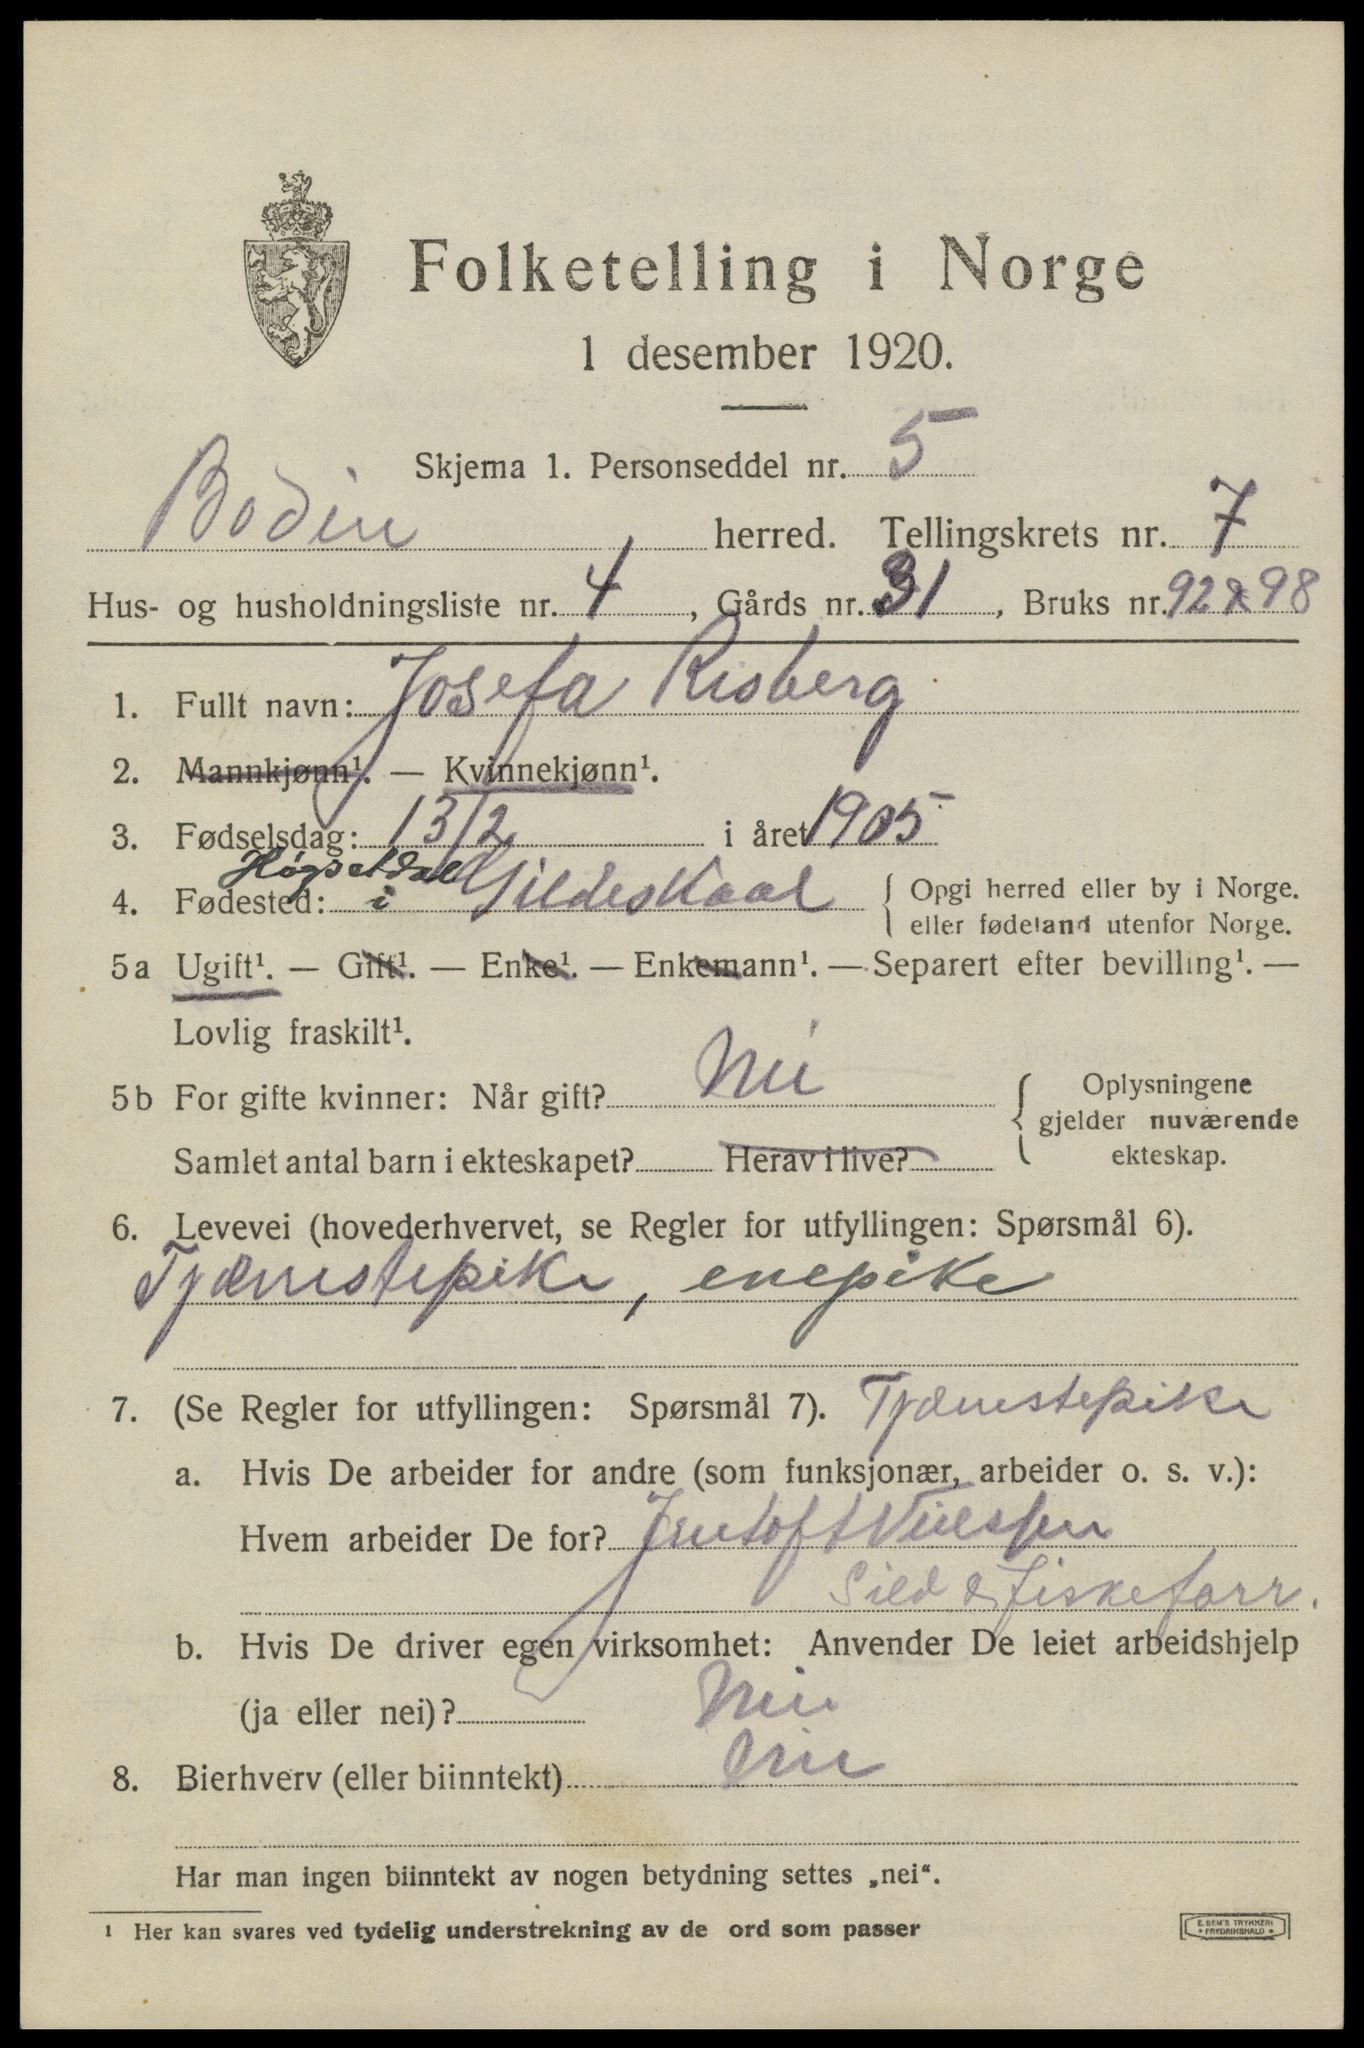 Folketelling i Norge
1 desember 1920.
Skjema 1. Personseddel nr. 5
Bodin herred. Tellingskrets nr. 7
Hus- og husholdningsliste nr. 4, Gårds nr. 31, Bruks nr. 92 & 98
1. Fullt navn: Josefa Risberg
2. Mannkjønn¹. — Kvinnekjønn¹.
3. Fødselsdag: 13/2 i året 1905
4. Fødested: i Gildeskaal { Opgi herred eller by i Norge.
eller fødeland utenfor Norge.
5a Ugift¹. — Gift¹. — Enke¹. — Enkemann¹. — Separert efter bevilling¹. —
Lovlig fraskilt¹.
5b For gifte kvinner: Når gift? Nei { Oplysningene
gjelder nuværende
Samlet antal barn i ekteskapet? Herav i live? ekteskap.
6. Levevei (hovederhvervet, se Regler for utfyllingen: Spørsmål 6).
Tjænestepike, enepike
7. (Se Regler for utfyllingen: Spørsmål 7). Tjænestepike
a. Hvis De arbeider for andre (som funksjonær, arbeider o. s. v.):
Hvem arbeider De for? Jentoft Nielssen
Sild & Fiskeforr.
b. Hvis De driver egen virksomhet: Anvender De leiet arbeidshjelp
(ja eller nei)? Nei
8. Bierhverv (eller biinntekt) Nei
Har man ingen biinntekt av nogen betydning settes „nei“.
¹ Her kan svares ved tydelig understrekning av de ord som passer
E. SEM'S TRYKKERI
• FREDRIKSHALD •